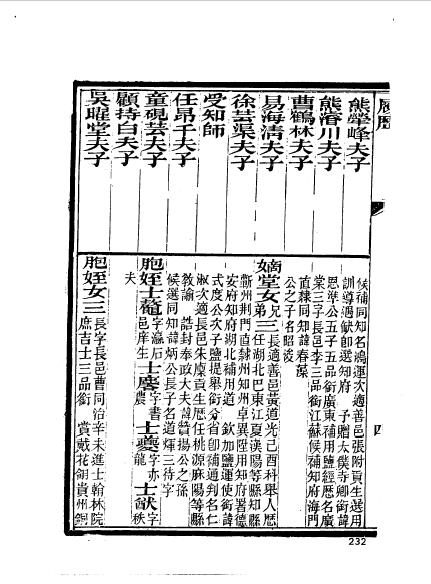 履歷
熊犖峰夫子
熊濬川夫子
曹鶴林夫子
易海清夫子
徐芸渠夫子
受知師
任昂千夫子
童硯芸夫子
顧持白夫子
吳曜堂夫子
候補同知名鴻運次適善邑張附貢生選用
訓導遇缺即選知府 子贈太僕寺卿銜諱
恩準公五子五品銜廣東補用鹽經歷名廣
棠三字長邑李三品銜江蘇候補知府海門
直隸同知諱春藻
公之子名昭浚
嫡堂女兄弟三長適善邑黃道光己酉科舉人歷
任湖北巴東江夏漢陽等縣知縣
蘄州荆門直隸州知州卓異陞用知府署德
安府知府湖北補用道 欽加鹽運使銜諱
式度公次子鹽提舉銜分省卽補通判名仁
淑次適長邑朱廩貢生歷任桃源麻陽等縣
教諭 誥封奉政大夫諱贊揚公之孫
候選同知諱炳公長子名道煇三待字
胞姪士鼇字瀛石邑庠生士麐字書農士夔字亦龍士猷字秩
夫
胞姪女三長字長邑曹同治辛未進士翰林院
庶吉士三品銜 賞戴花翎貴州銅
四
232